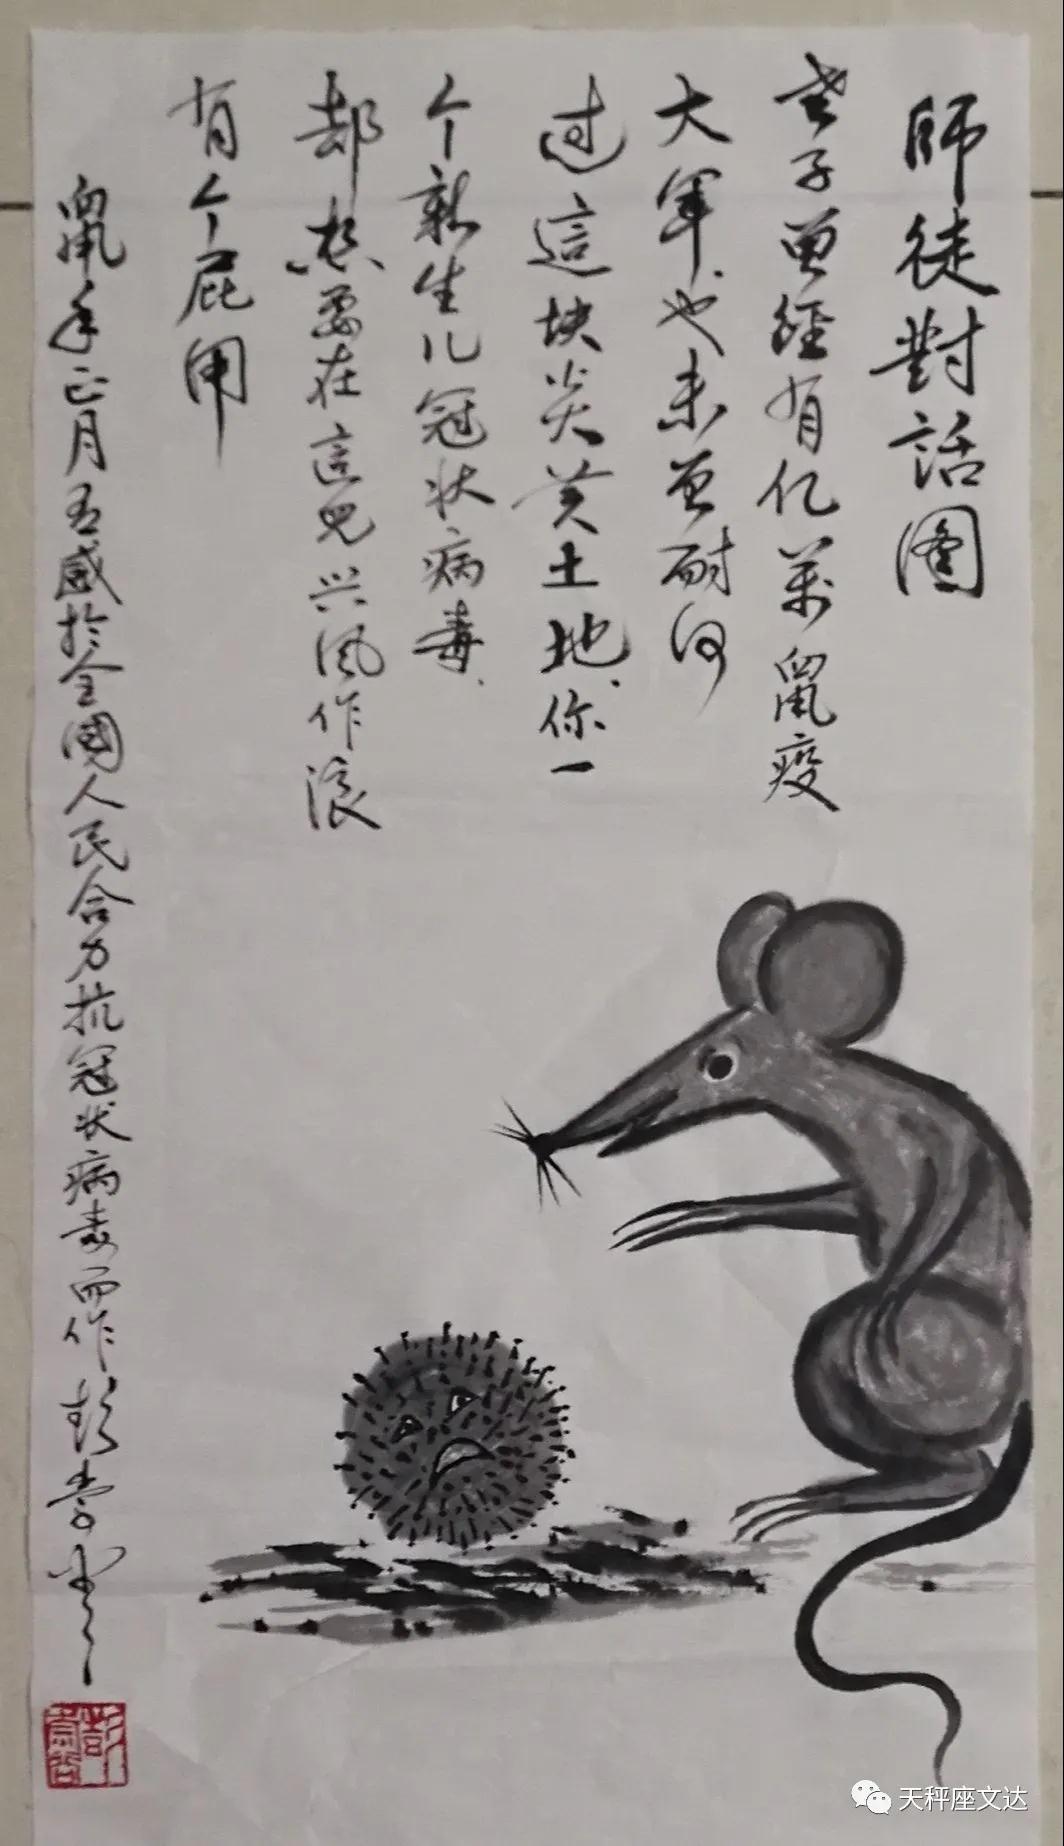 師徒對話图
老子曾經有亿萬鼠疫
大军、也未曾耐何
过這块炎黄土地、你一
个新生儿冠状病毒、
却想要在這兒兴风作浪
有个屁用
鼠年正月五感於全國人民合力抗冠状病毒而作 彭
天秤座文达